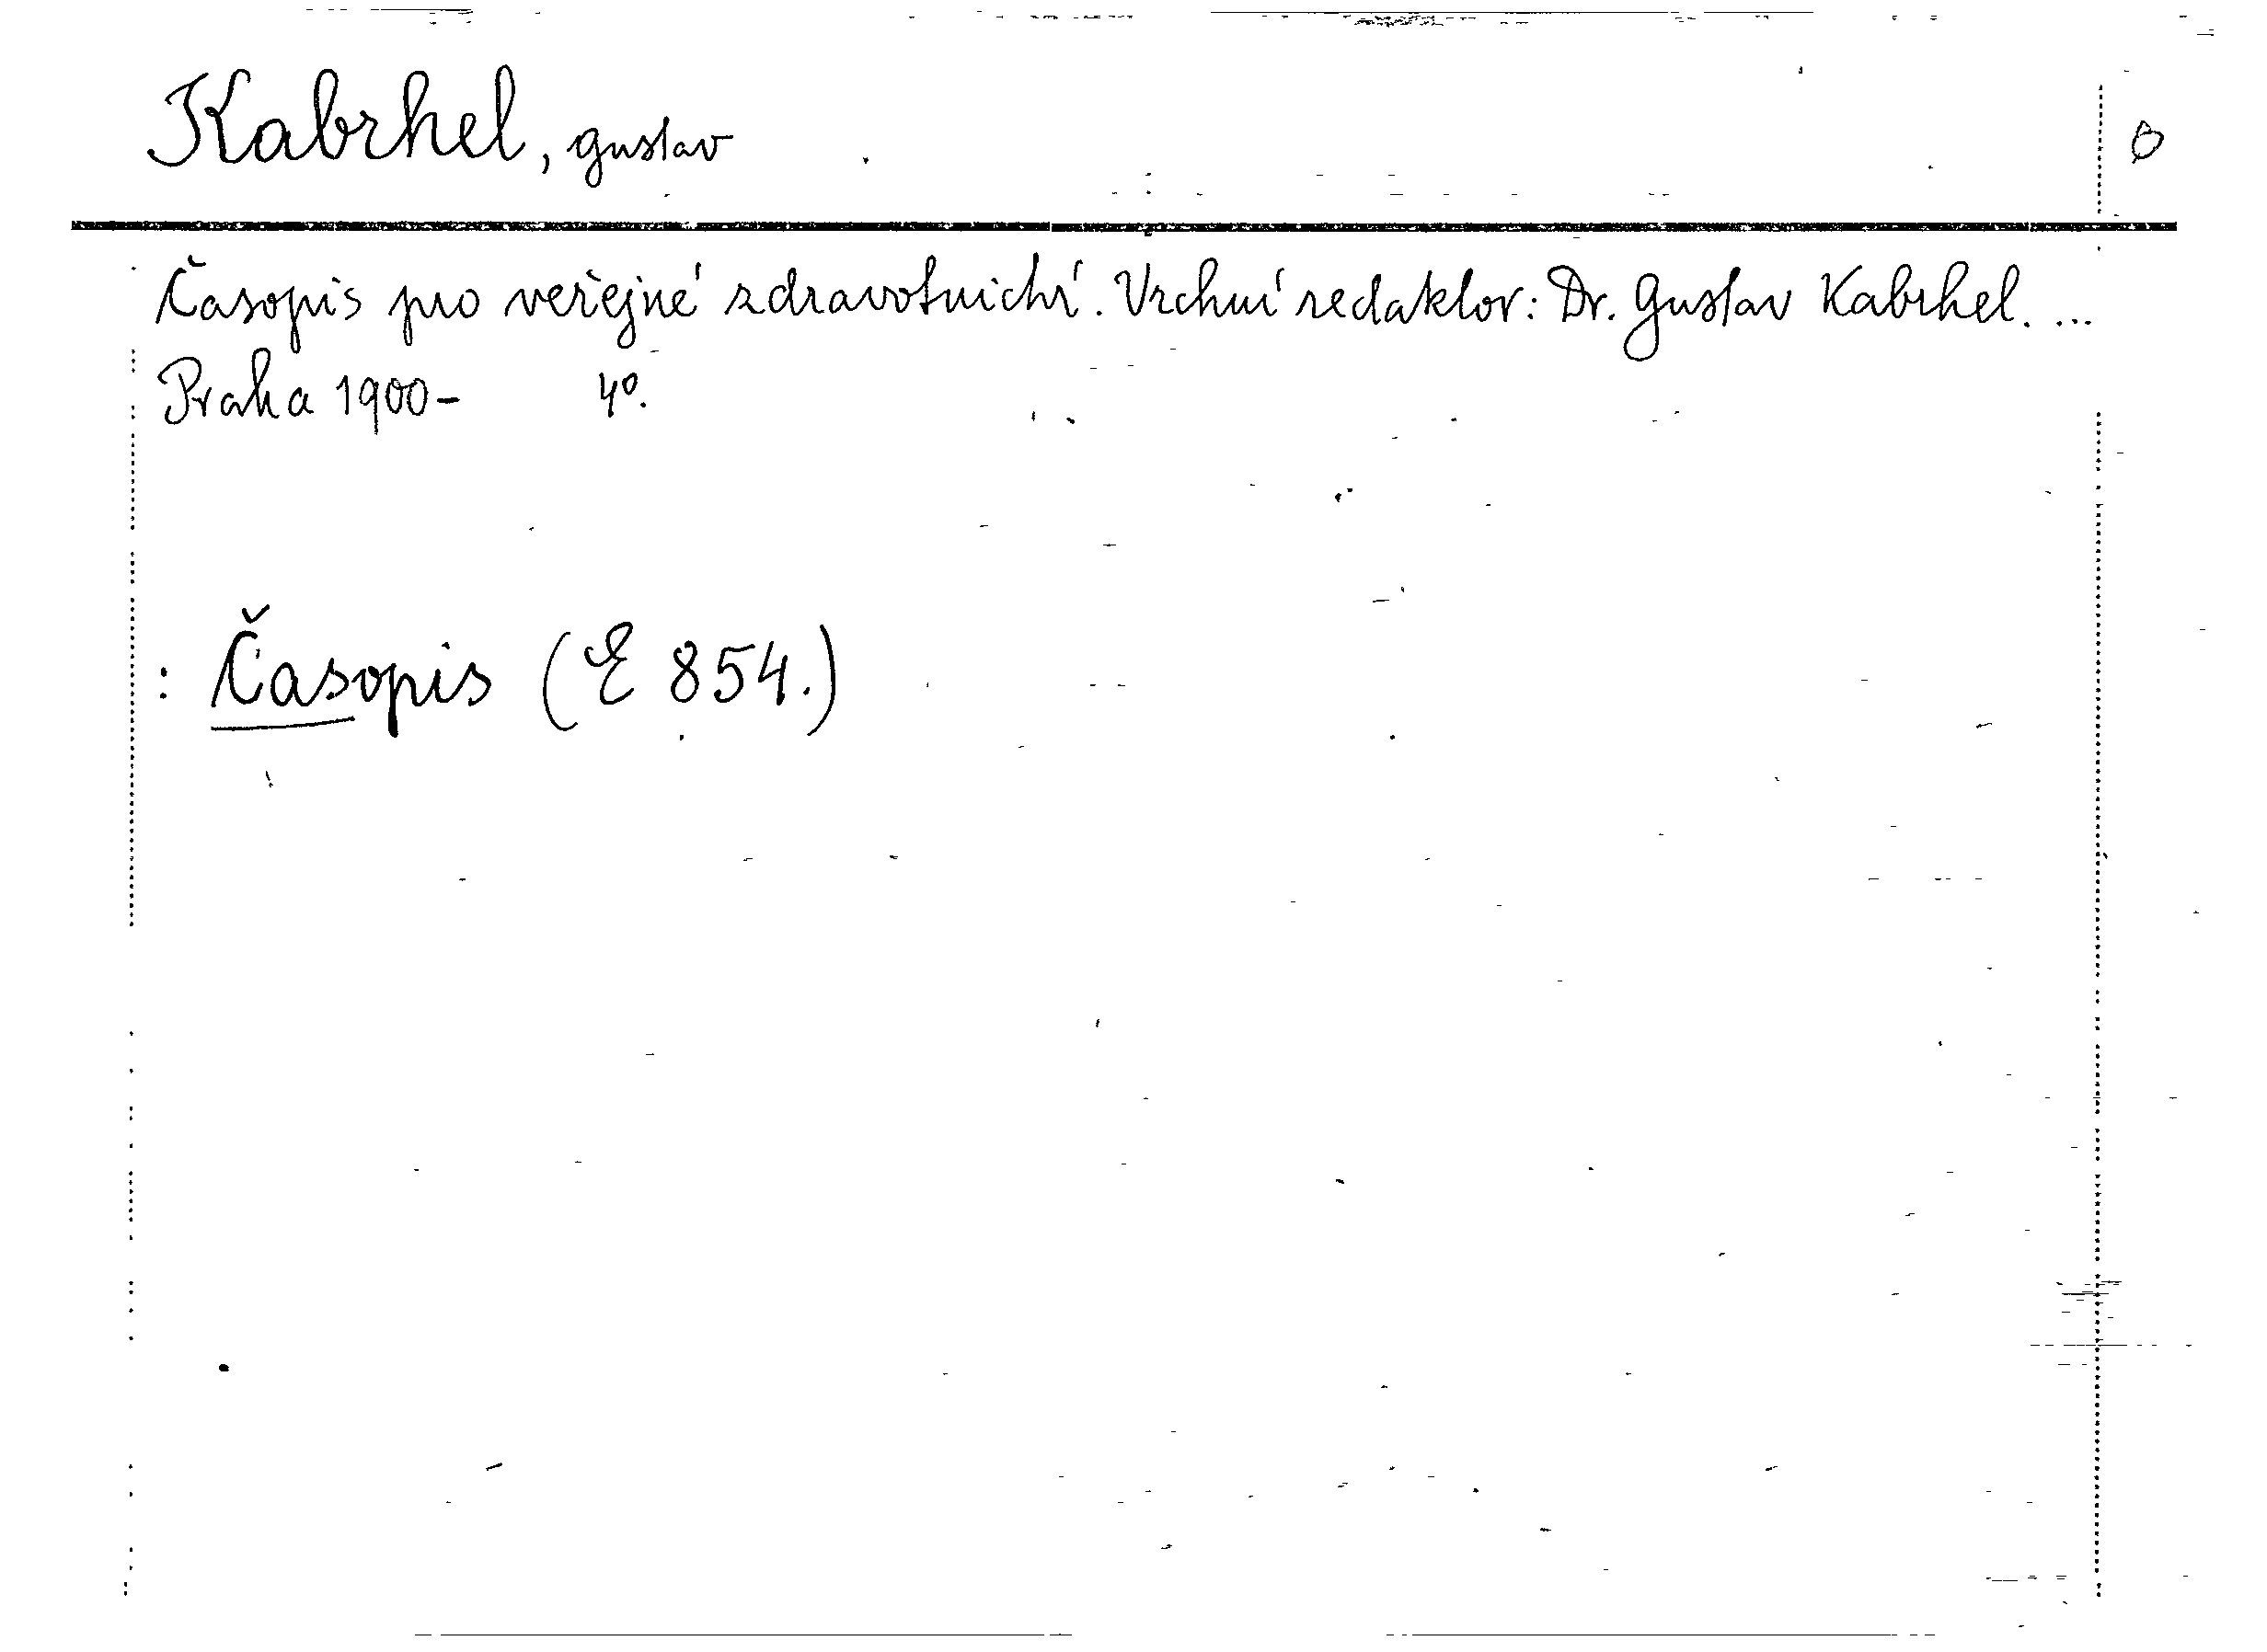 Kabrhel, Gustav
Časopis pro veřejné zdravotnictví. Vrchní redaktor: Dr. Gustav Kabrhel. ...
Praha 1900- 4°.
: Časopis (E 854.)